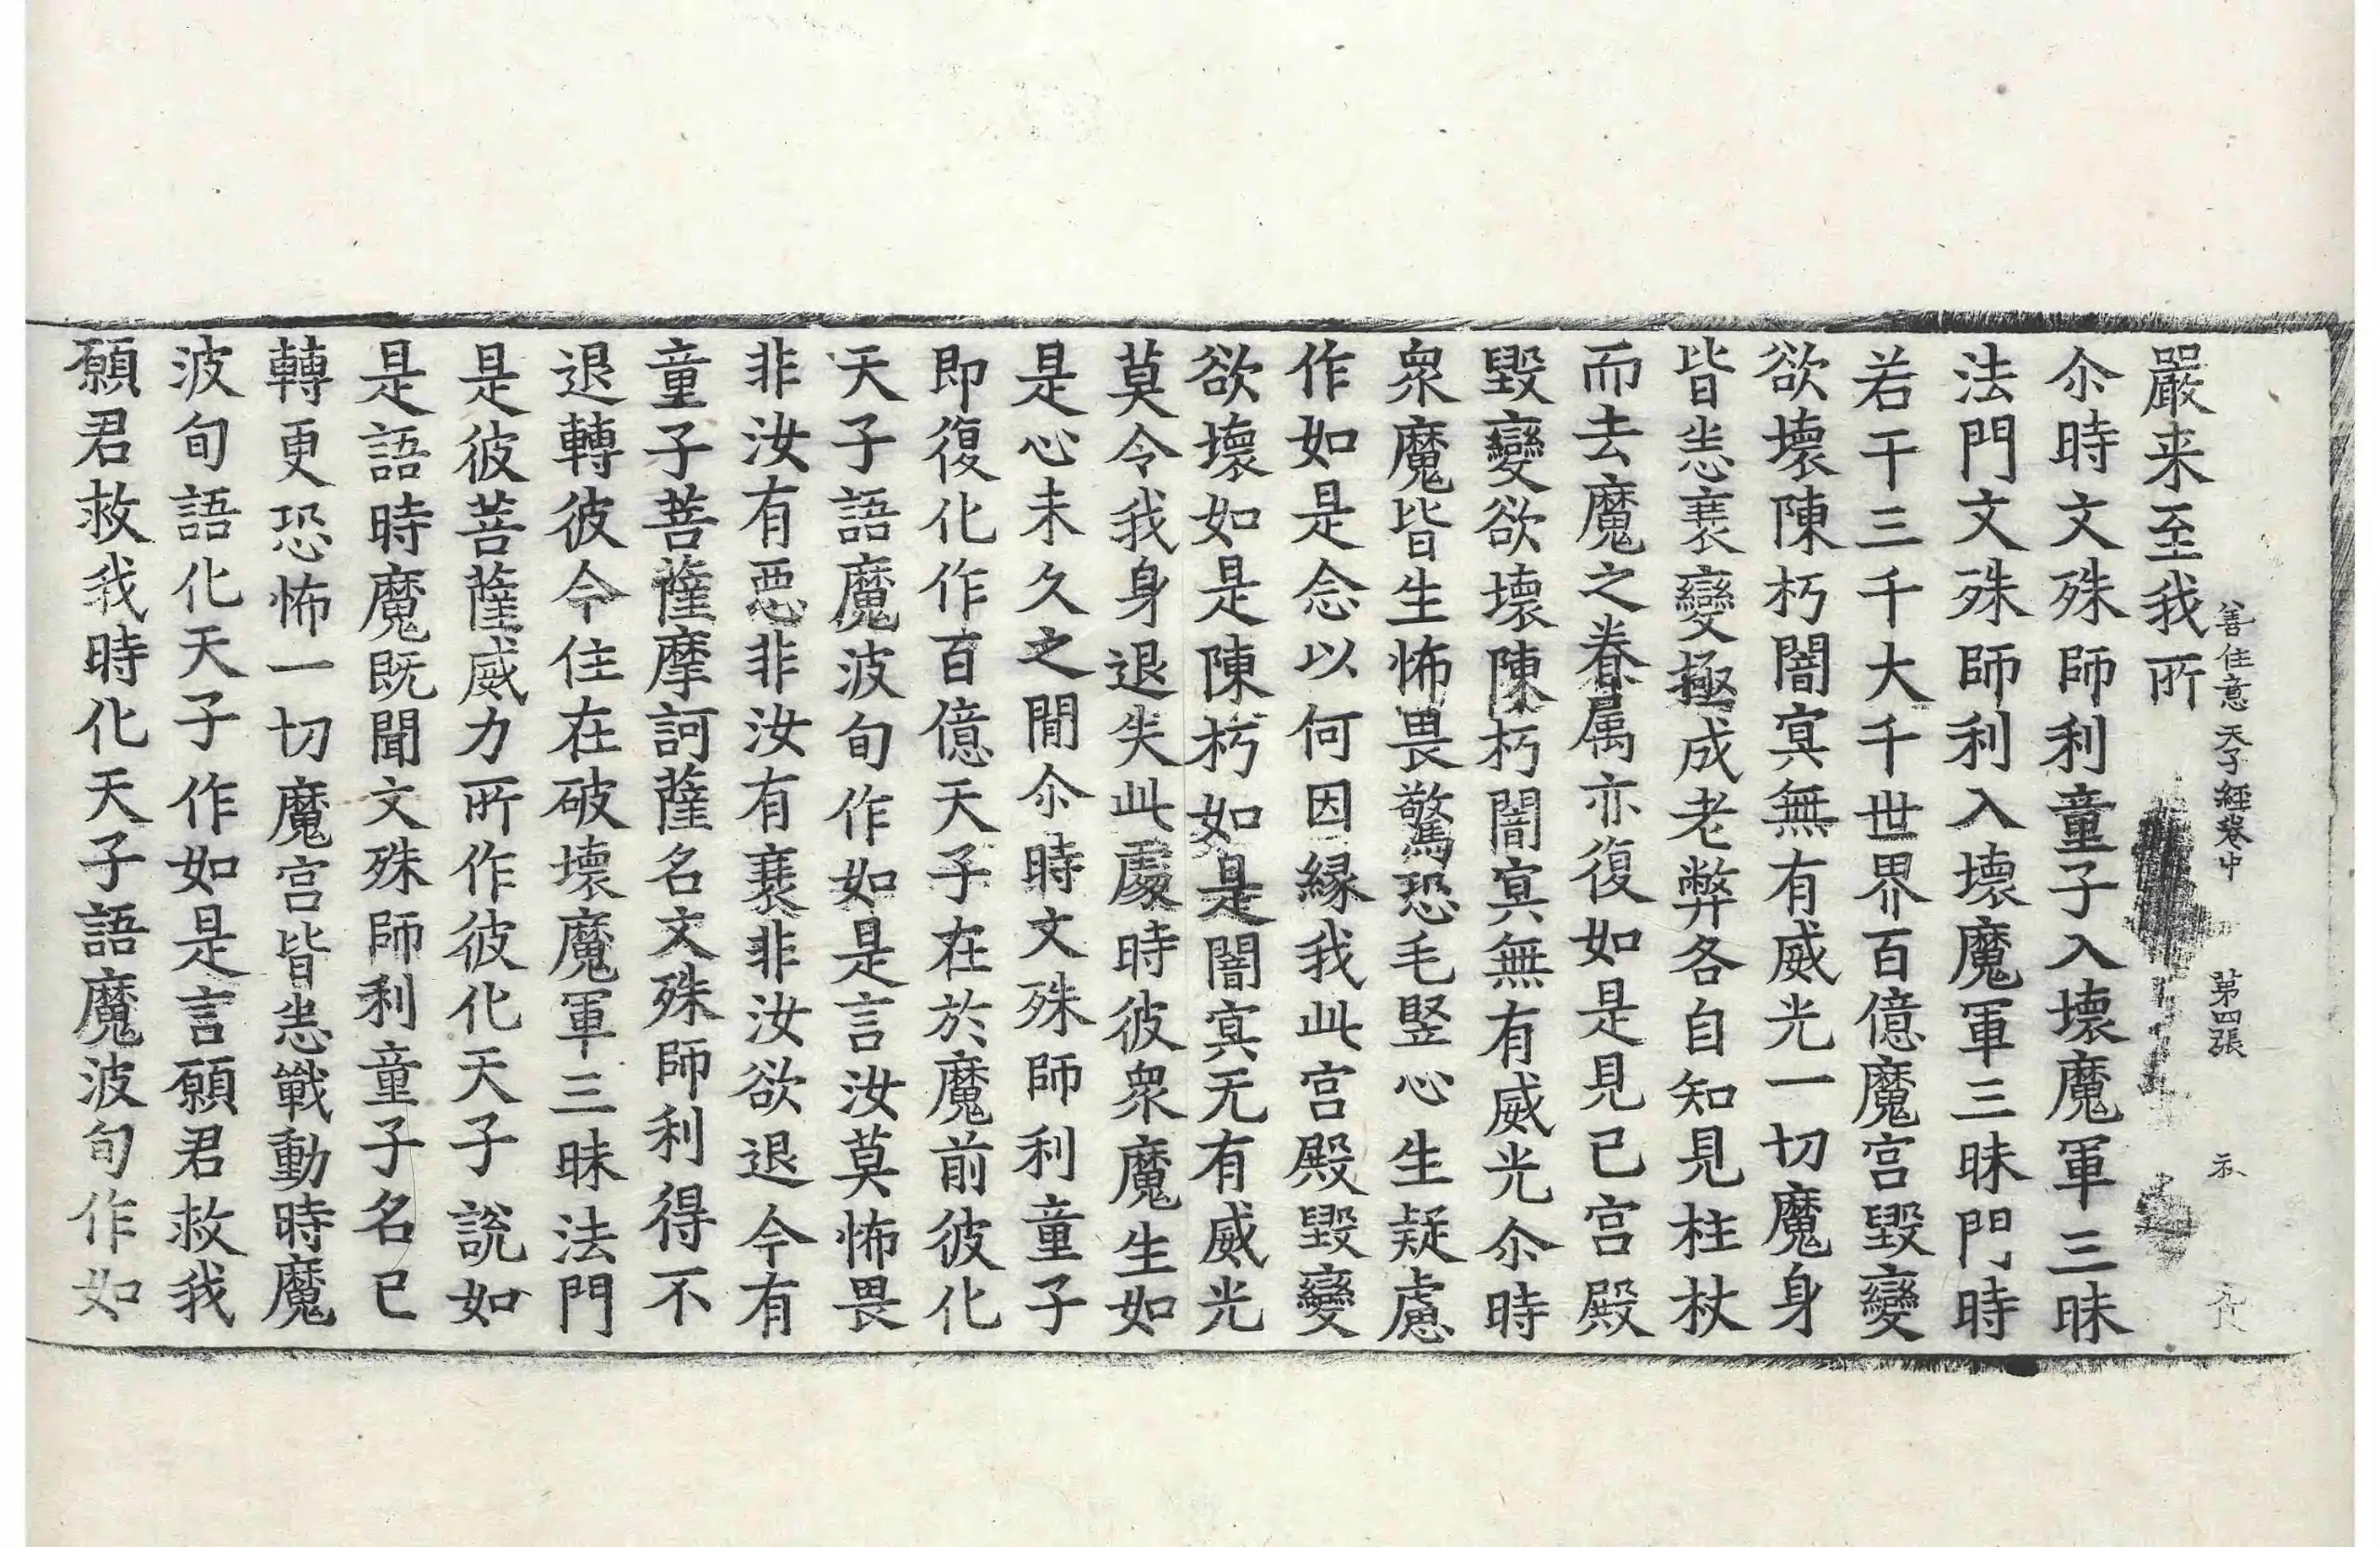 善住意天子經卷中 第四張
嚴来至我所
尒時文殊師利童子入壞魔軍三昧
法門文殊師利入壞魔軍三昧門時
若干三千大千世界百億魔宮毀變
欲壞陳朽闇冥無有威光一切魔身
皆悉衰變極成老弊各自知見柱杖
而去魔之眷属亦復如是見已宮殿
毀變欲壞陳朽闇冥無有威光尒時
衆魔皆生怖畏驚恐毛竪心生疑慮
作如是念以何因縁我此宮殿毀變
欲壞如是陳朽如是闇冥无有威光
莫令我身退失此處時彼衆魔生如
是心未久之閒尒時文殊師利童子
即復化作百億天子在於魔前彼化
天子語魔波旬作如是言汝莫怖畏
非汝有惡非汝有衰非汝欲退今有
童子菩薩摩訶薩名文殊師利得不
退轉彼今住在破壞魔軍三昧法門
是彼菩薩威力所作彼化天子說如
是語時魔既聞文殊師利童子名已
轉更恐怖一切魔宮皆悉戰動時魔
波旬語化天子作如是言願君救我
願君救我時化天子語魔波旬作如